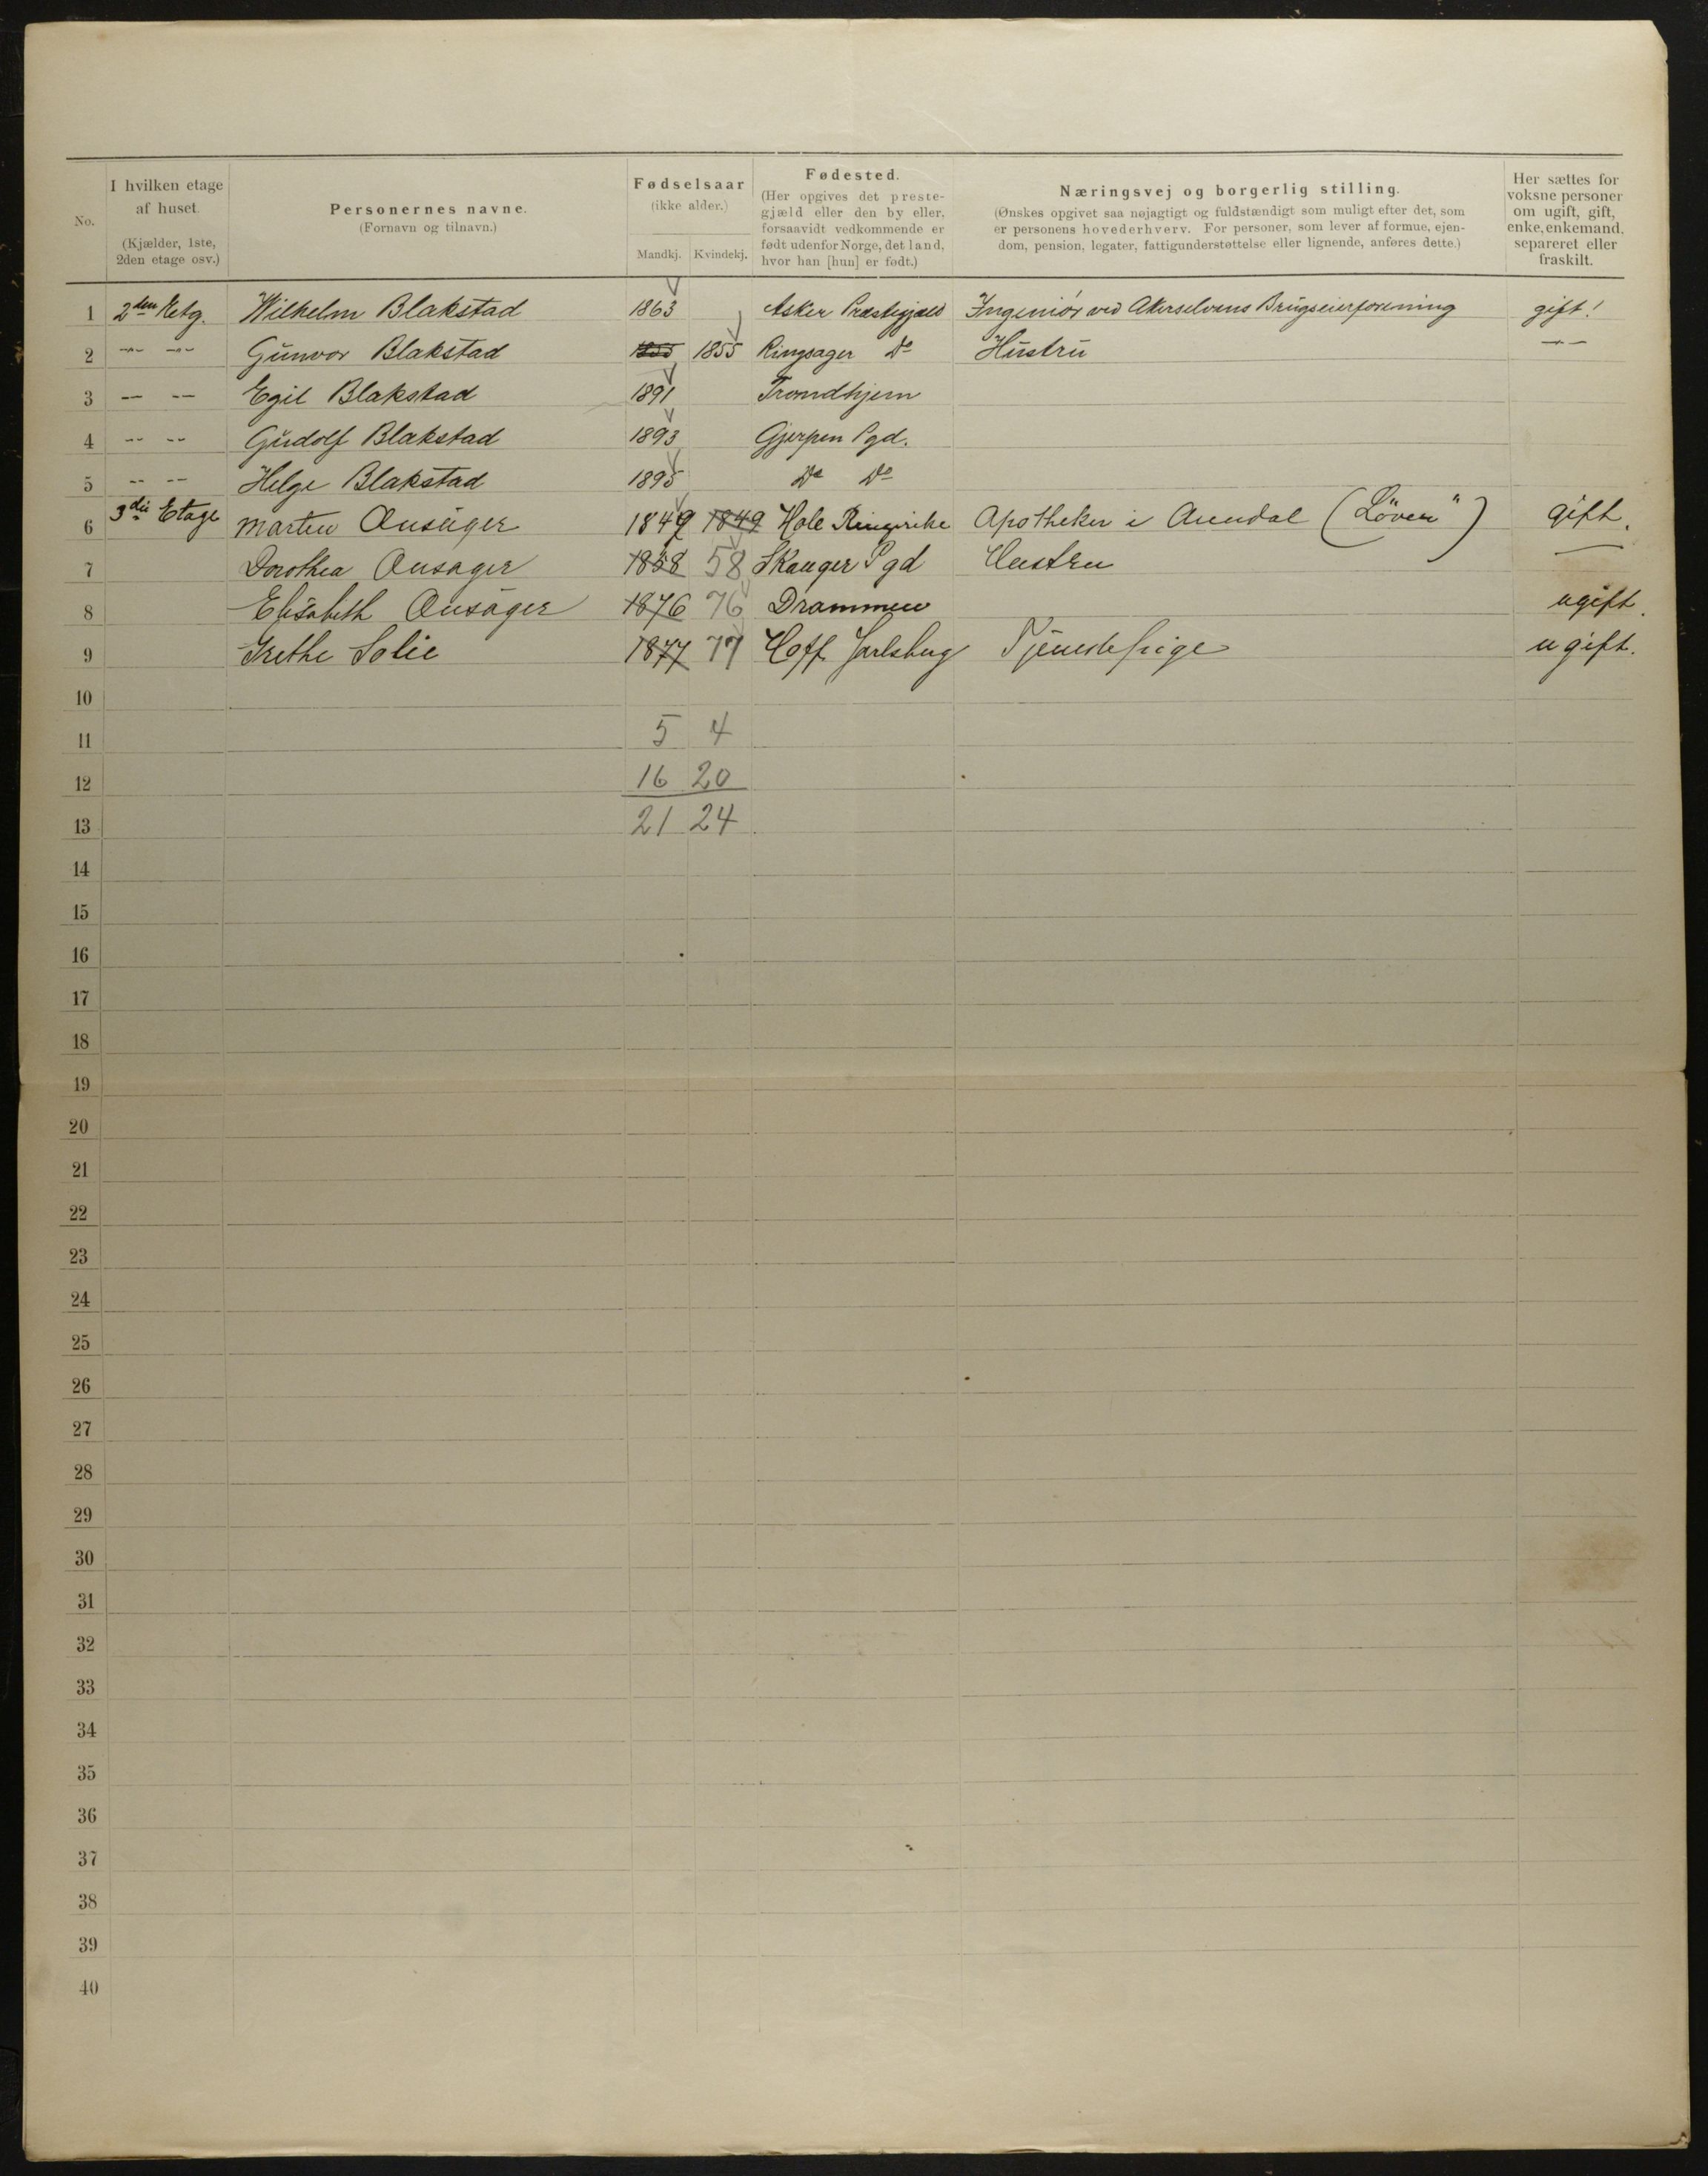 No.
I hvilken etage af huset. (Kjælder, 1ste, 2den etage osv.)
Personernes navne. (Fornavn og tilnavn.)
Fødselsaar (ikke alder.)
Mandkj. Kvindekj.
Fødested. (Her opgives det prestegjæld eller den by eller, forsaavidt vedkommende er født udenfor Norge, det land, hvor han [hun] er født.)
Næringsvej og borgerlig stilling.
(Ønskes opgivet saa nøjagtigt og fuldstændigt som muligt efter det, som er personens hovederhverv. For personer, som lever af formue, ejendom, pension, legater, fattigunderstøttelse eller lignende, anføres dette.)
Her sættes for voksne personer om ugift, gift, enke, enkemand, separeret eller fraskilt.
1 2den Etg. Wilhelm Blakstad 1863 Asker Præstegjæld Ingeniør ved Akerselvens Brugseierforening gift!
2 -"- -"- Gunvor Blakstad 1855 1855 Ringsager Do Hustru -"-
3 -"- -"- Egil Blakstad 1891 Trondhjem
4 -"- -"- Gudolf Blakstad 1893 Gjerpen Pgd.
5 -"- -"- Helge Blakstad 1895 Do Do
6 3die Etage Marten Ansager 1849 1849 Hole Ringerike Apotheker i Arendal (Löven") gift.
7 Dorothea Ansager 1858 58 Skauger Pgd Hustru —
8 Elisabeth Ansager 1876 76 Drammen ugift.
9 Grethe Solie 1877 77 Hoff Jarlsberg Tjenestepige ugift.
10
11 5 4
12 16 20
13 21 24
14
15
16
17
18
19
20
21
22
23
24
25
26
27
28
29
30
31
32
33
34
35
36
37
38
39
40